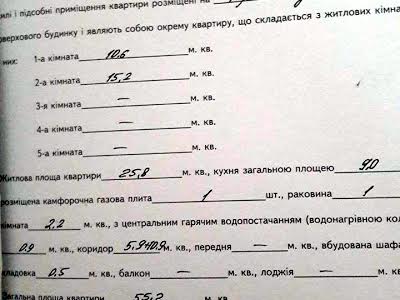 илі і підсобні приміщення квартири розміщені на
поверхового будинку і являють собою окрему квартиру, що складається з житлових кімна
них: 1-а кімната 10,6 м. кв.
2-а кімната 15,2 м. кв.
3-я кімната — м. кв.
4-а кімната — м. кв.
5-а кімната — м. кв.
Житлова площа квартири 25,8 м. кв., кухня загальною площею 9,0
розміщена камфорочна газова плита 1 шт., раковина 1
кімната 2,2 м. кв., з центральним гарячим водопостачанням (водонагрівною кол
0,9 м. кв., коридор 5,9+0,9 м. кв., передня — м. кв., вбудована шафа
кладовка 0,5 м. кв., балкон — м. кв., лоджія — м. кв.
Загальна площа квартири 55,2 м. кв.